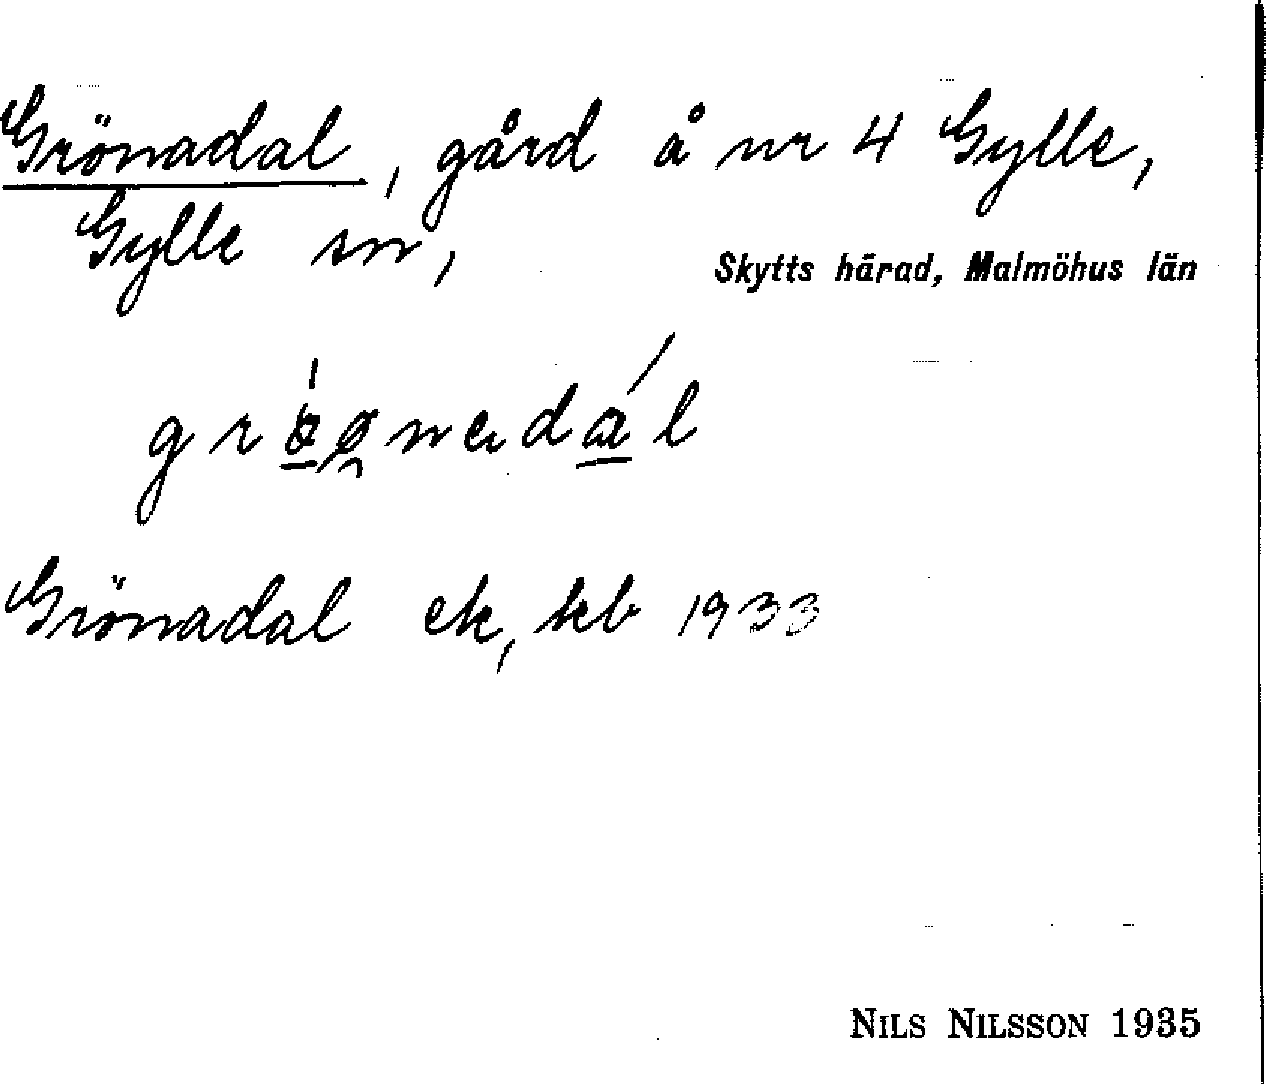 Grönadal, gård å nr 4 Gylle,
Gylle sn,
Skytts härad, Malmöhus län
Grönadal ek, kb 1933
NILS NILSSON 1935